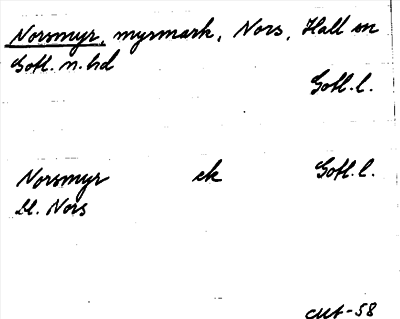 Norsmyr, myrmark, Nors, Hall sn
Gotl. n. hd
Gotl. l.
Norsmyr ek Gotl. l.
Bl. Nors